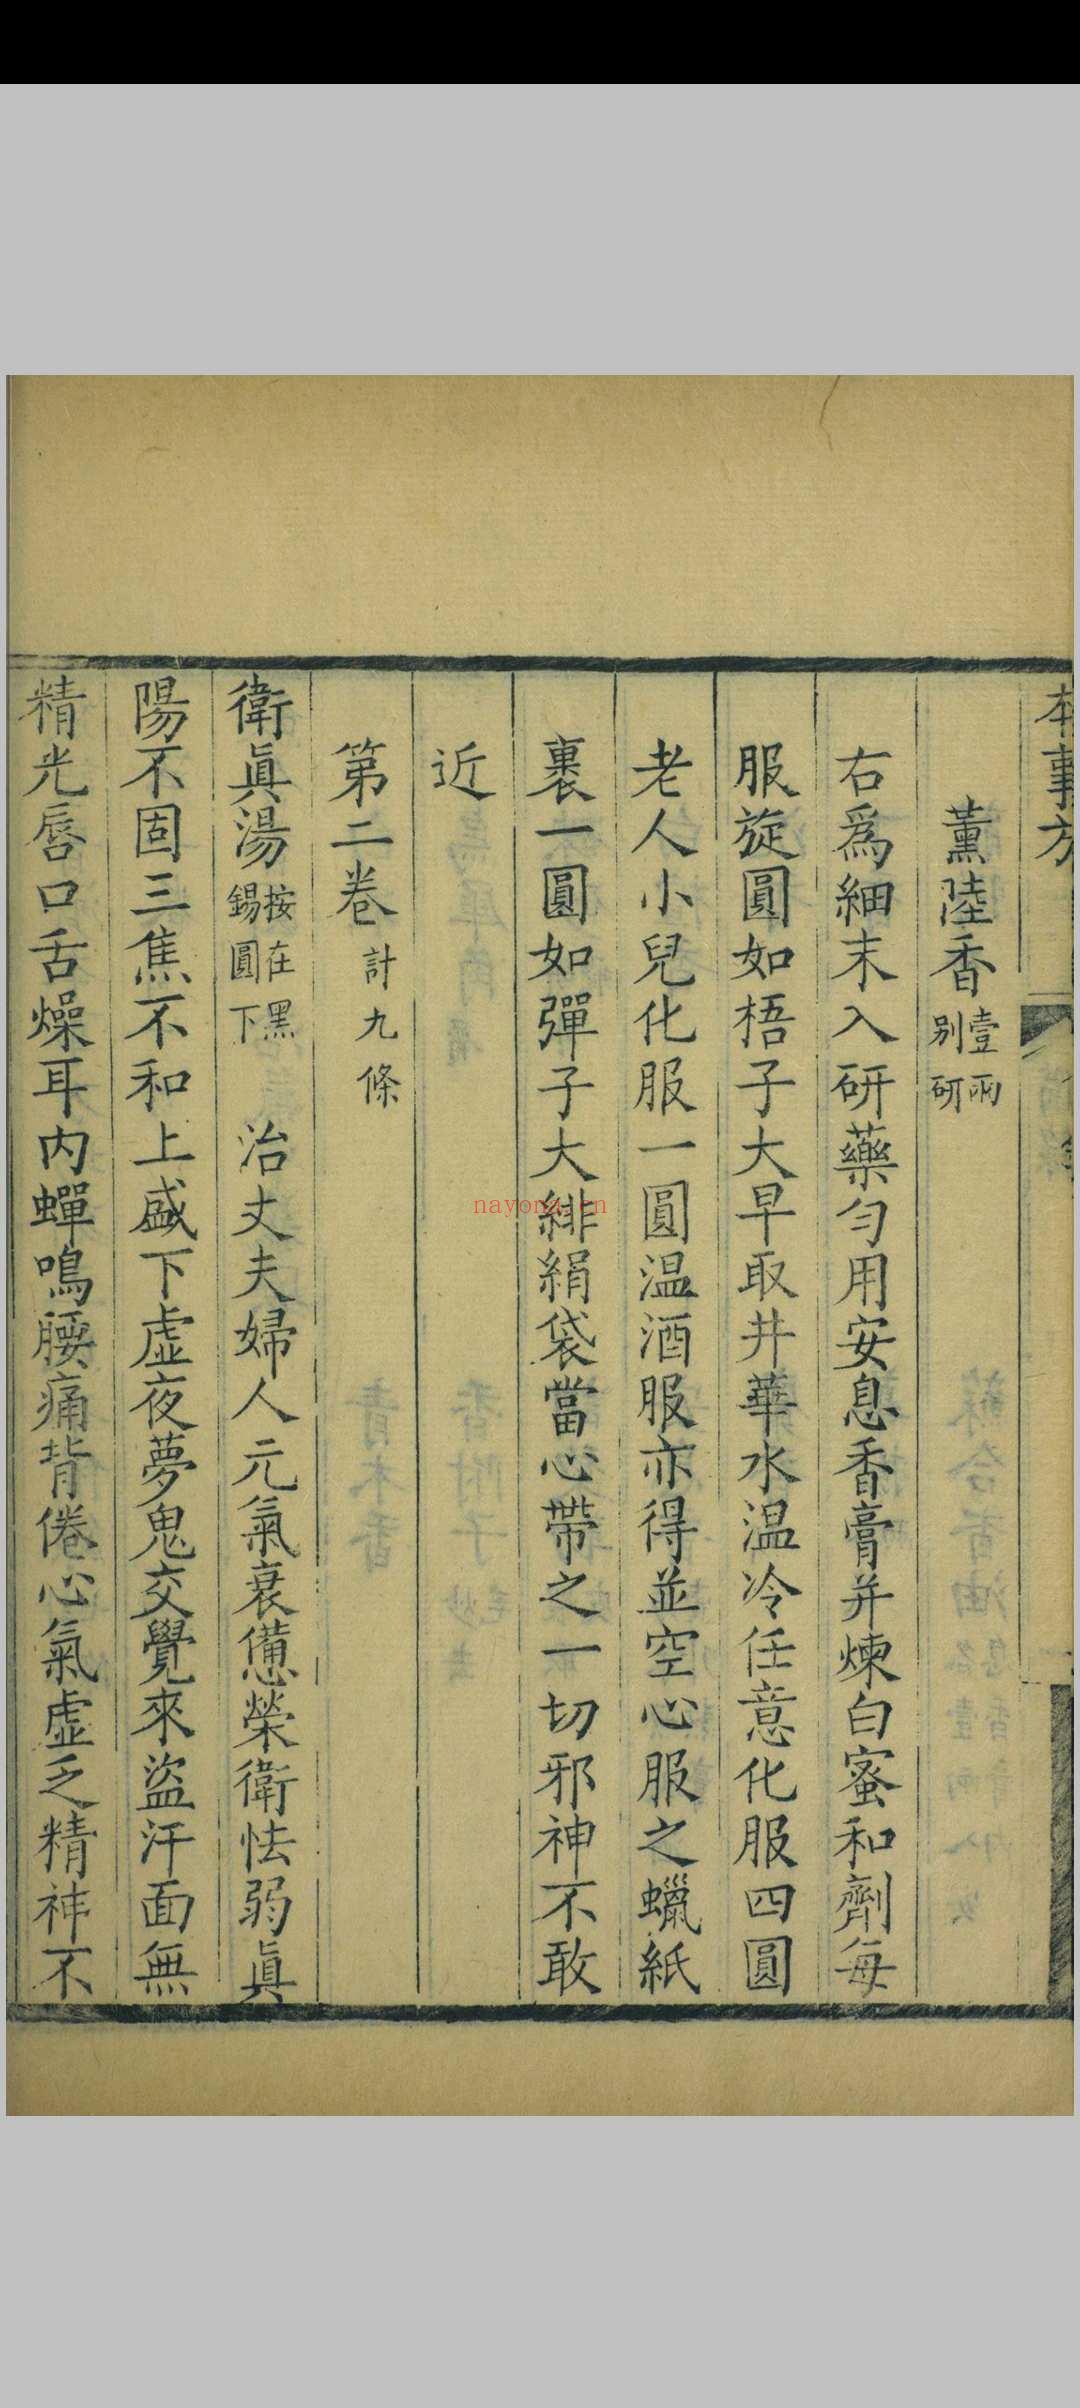 本事方
薰陸香壹兩别研
右爲細末入研藥匀用安息香膏并煉白蜜和劑每
服旋圓如梧子大早取井華水温冷任意化服四圓
老人小兒化服一圓温酒服亦得並空心服之蠟紙
裹一圓如彈子大緋絹袋當心帶之一切邪神不敢
近
第二卷計九條
衛眞湯按在黑錫圓下 治丈夫婦人元氣衰憊榮衛怯弱眞
陽不固三焦不和上盛下虛夜夢鬼交覺來盜汗面無
精光唇口舌燥耳内蟬鳴腰痛背倦心氣虛乏精神不
nayona.cn